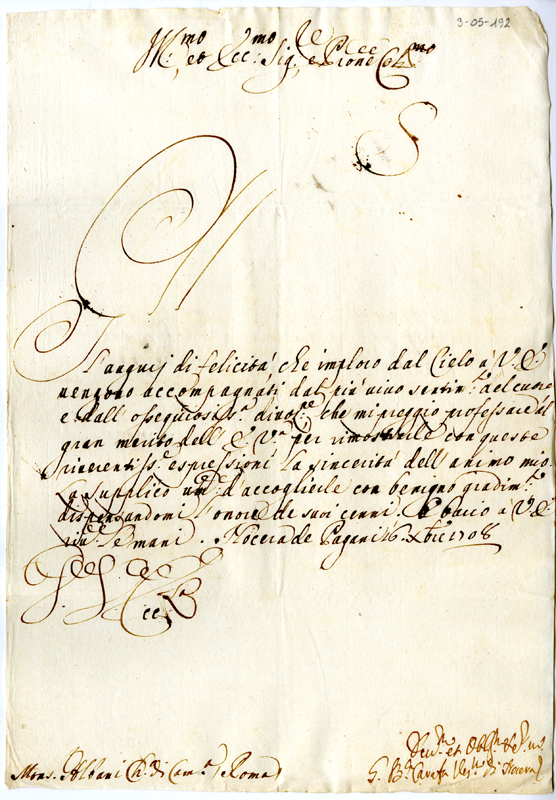 3-05-192
Ill.mo et Ecc.mo Sig.re e P̃rone Col.mo
Gl'auguij di felicità, che imploro dal Cielo à V.E.
vengono accompagnati dal più vivo sentim.to del cuore
e dall'ossequiosiss.a divoz.ne che mi preggio professare al
gran merito dell'E. V.ra per rimostrarle con queste
riverentiss.e espressioni la sincerità dell'animo mio.
La supplico um.te d'accoglierle con benigno gradim.to
dispensandomi l'onore de suoi cenni. E bacio a V.E.
riv.te le mani. Nocera de Pagani 16 Xbre 1708
Mons. Albani Ch. di Cam.a Roma
Dev.mo et Obblig.mo Ser.
G. B. Carafa Vesc.o di Nocera